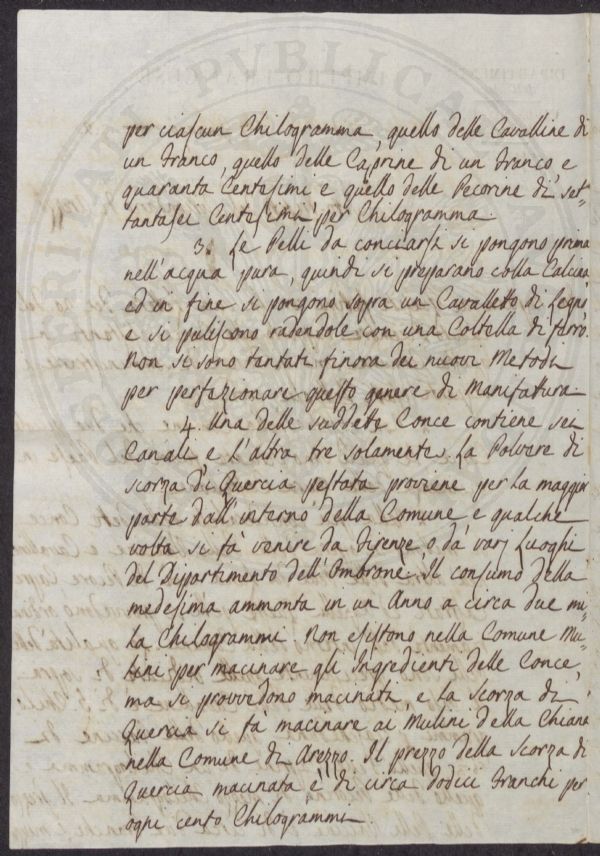 per ciascun Chilogramma, quello delle Cavalline di
un Franco, quello delle Caprine di un Franco e
quaranta Centesimi e quello delle Pecorine di set=
tantasei Centesimi per Chilogramma.
3. Le Pelli da conciarsi si pongono prima
nell'acqua pura, quindi si preparano colla Calcina
ed in fine si pongono sopra un Cavalletto di legno
e si puliscono radendole con una Coltella di ferro.
Non si sono tentati finora dei nuovi Metodi
per perfezionare questo genere di Manifattura.
4. Una delle suddette Conce contiene sei
Canali e l'altra tre solamente. La Polvere di
scorza di Quercia pestata proviene per la maggior
parte dall'interno della Comune e qualche
volta si fà venire da Firenze o da varj Luoghi
del Dipartimento dell'Ombrone. Il consumo della
medesima ammonta in un Anno a circa due mi=
la Chilogrammi. Non esistono nella Comune Mu=
lini per macinare gli Ingredienti delle Conce,
ma si provvedono macinati, e la scorza di
Quercia si fà macinare ai Mulini della Chiana
nella Comune di Arezzo. Il prezzo della scorza di
Quercia macinata è di circa dodici Franchi per
ogni cento Chilogrammi.